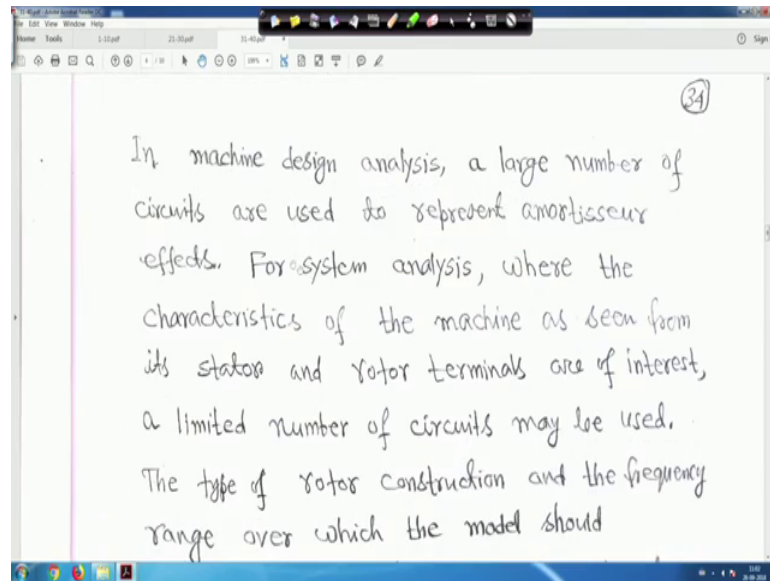 31-40.pdf - Adobe Acrobat Reader DC
File Edit View Window Help
Home Tools 1-10.pdf 21-30.pdf 31-40.pdf × Sign
34
In machine design analysis, a large number of
circuits are used to represent amortisseur
effects. For system analysis, where the
characteristics of the machine as seen from
its stator and rotor terminals are of interest,
a limited number of circuits may be used.
The type of rotor construction and the frequency
range over which the model should